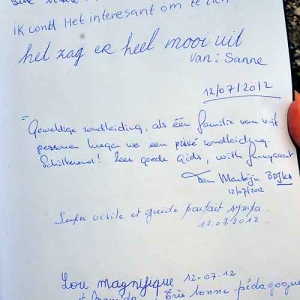 IK vond Het interesant om te zien
het zag er heel mooi uit
Van: Sanne
12/07/2012
Geweldige rondleiding, als één familie van vijf
personen kregen we een privé rondleiding.
Schitterend! Zeer goede Gids, with
Van Martijn
12/07/2012
Super visite et guide parfait sympa
12.07.2012
Lou magnifique 12-07-12
Très bonne pédagogue